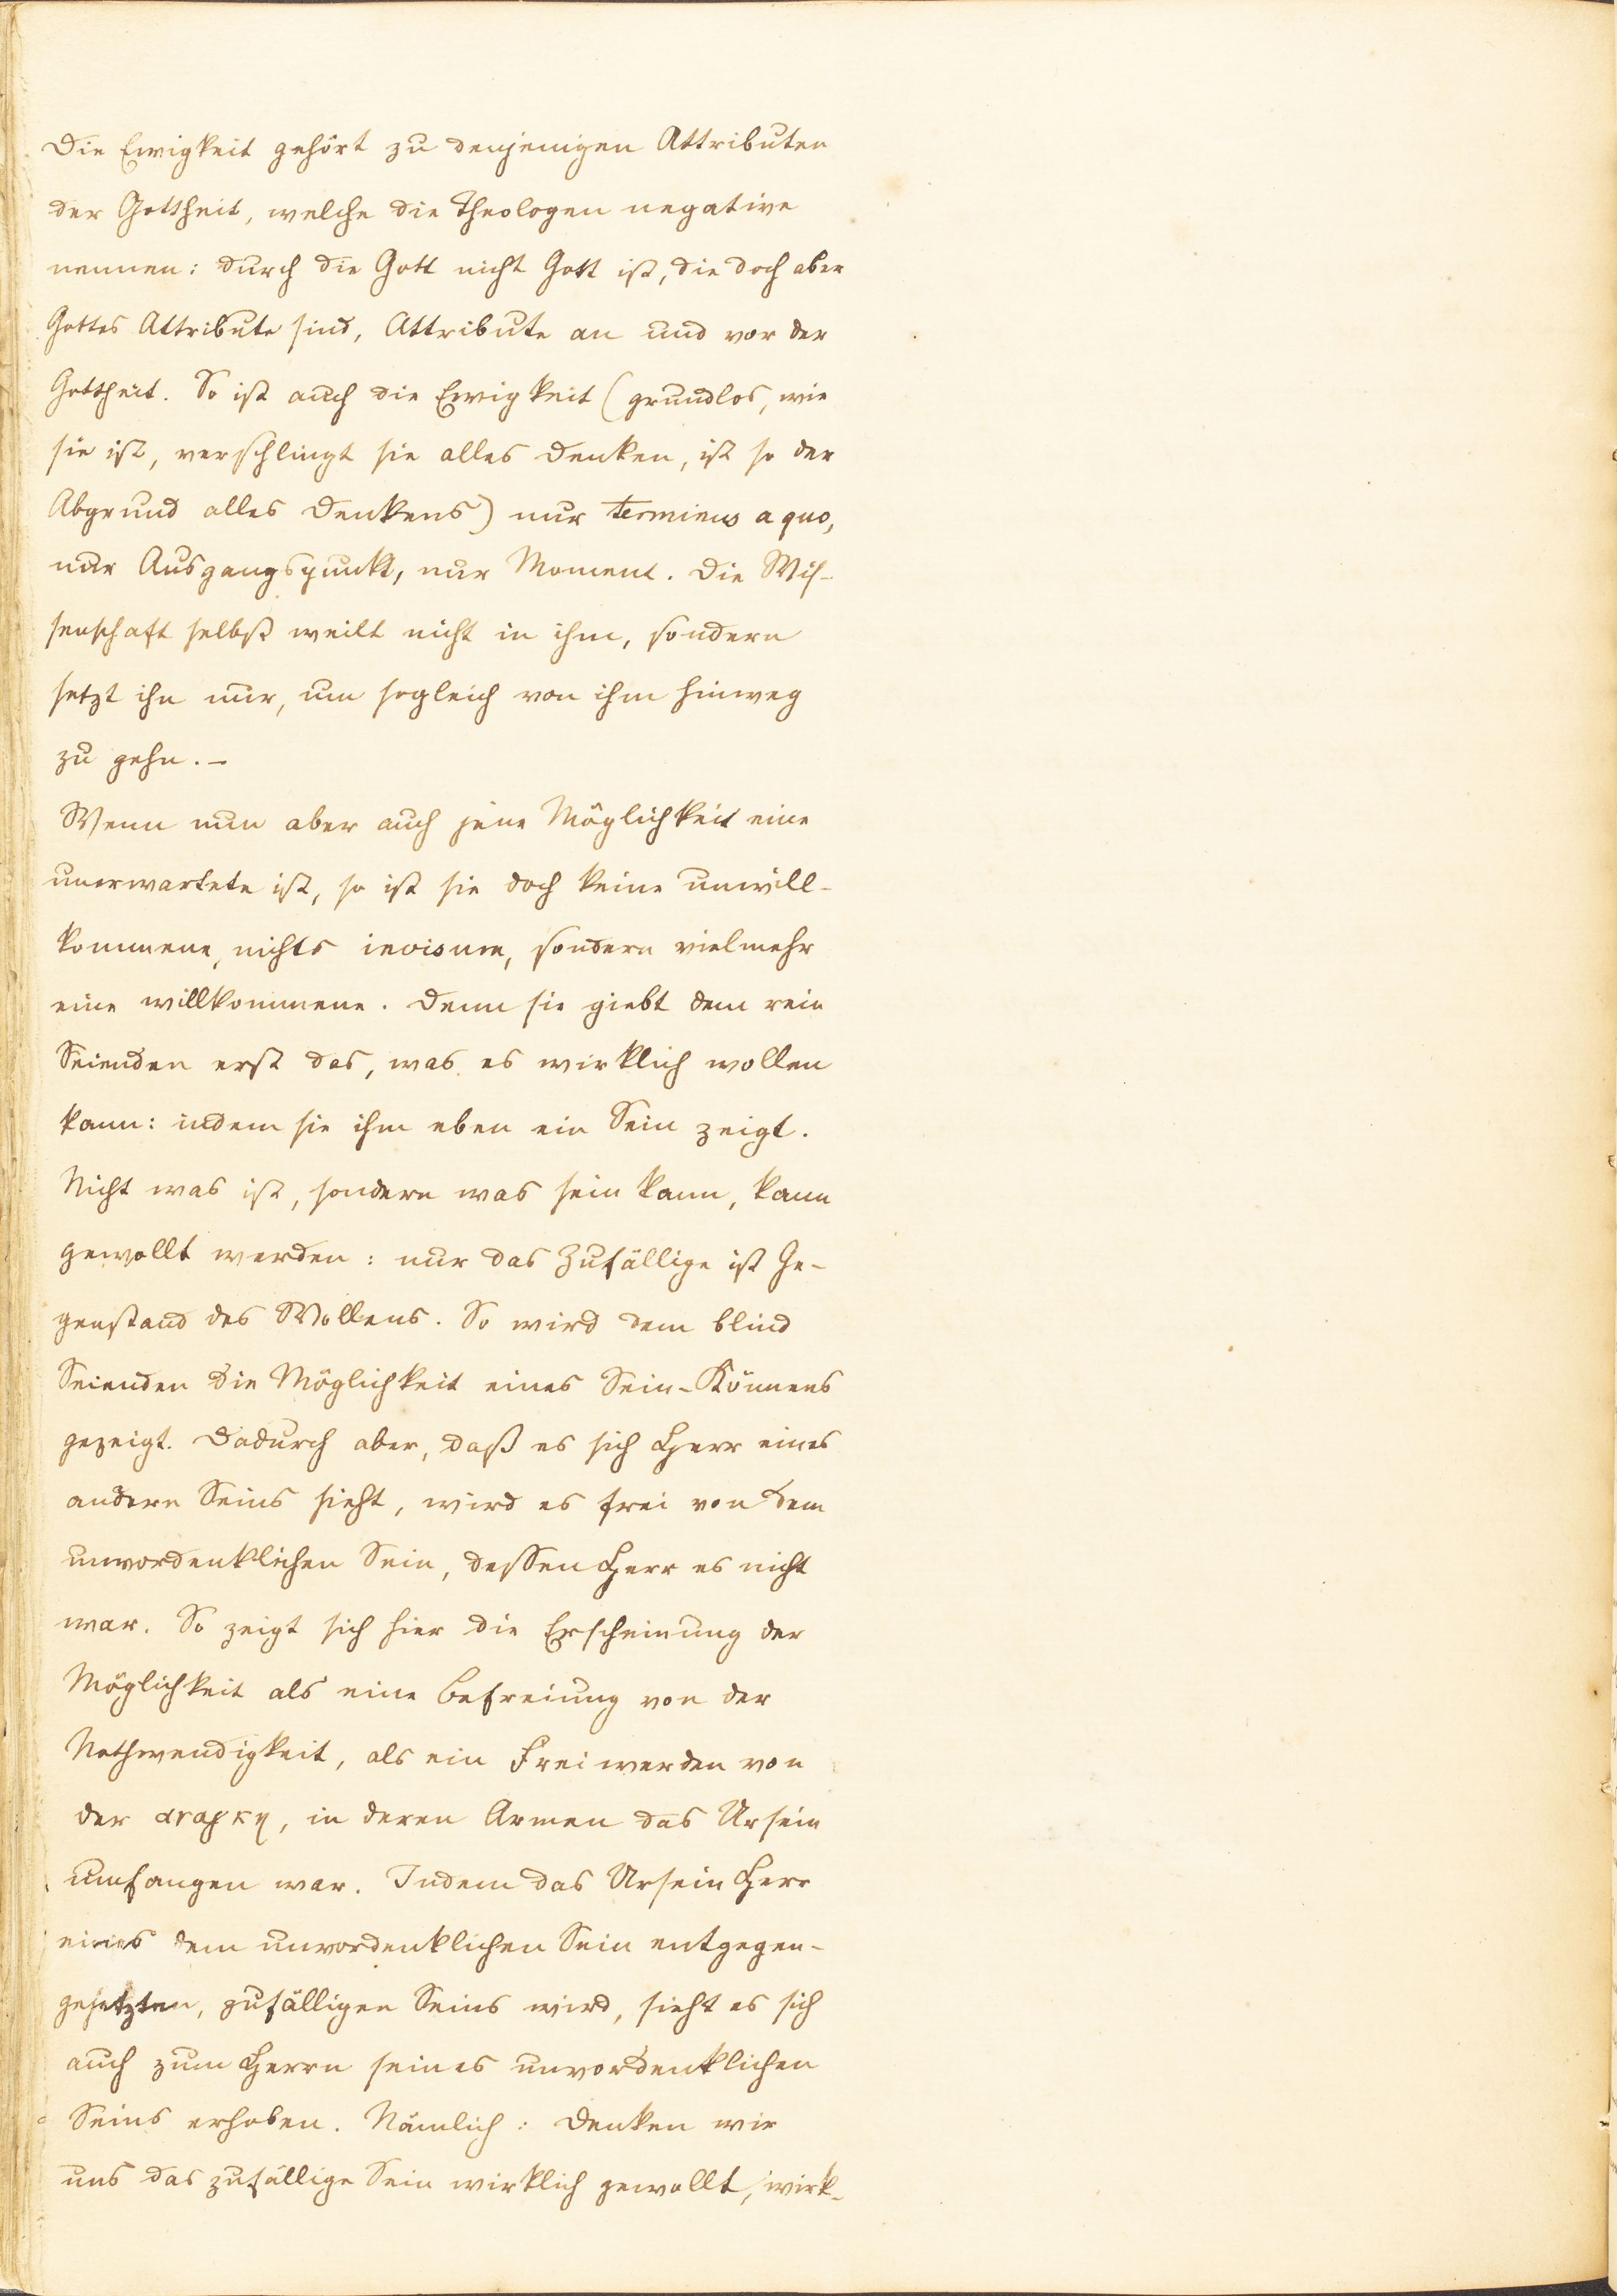 Die Ewigkeit gehört zu denjenigen Attributen
der Gottheit, welche die Theologen negative
nennen: durch die Gott nicht Gott ist, die doch aber
Gottes Attribute sind, Attribute an und vor der
Gottheit. So ist auch die Ewigkeit (grundlos, wie
sie ist, verschlingt sie alles Denken, ist so der
Abgrund alles Denkens) nur terminus a quo,
nur Ausgangspunkt, nur Moment. Die Wis-
senschaft selbst weilt nicht in ihm, sondern
setzt ihn nur, um sogleich von ihm hinweg
zu gehn. –
Wenn nun aber auch jene Möglichkeit eine
unerwartete ist, so ist sie doch keine unwill-
kommene, nichts invisum, sondern vielmehr
eine willkommene. Denn sie giebt dem rein
Seienden erst das, was es wirklich wollen
kann: indem sie ihm eben ein Sein zeigt.
Nicht was ist, sondern was sein kann, kann
gewollt werden: nur das Zufällige ist Ge-
genstand des Wollens. So wird dem blind
Seienden die Möglichkeit eines Sein-Könnens
gezeigt. Dadurch aber, daß es sich Herr eines
andern Seins sieht, wird es frei von dem
unvordenklichen Sein, dessen Herr es nicht
war. So zeigt sich hier die Erscheinung der
Möglichkeit als eine Befreiung von der
Nothwendigkeit, als ein Freiwerden von
der αναγκη, in deren Armen das Ursein
umfangen war. Indem das Ursein Herr
eines dem unvordenklichen Sein entgegen-
gesetzten, zufälligen Seins wird, sieht es sich
auch zum Herrn seines unvordenklichen
Seins erhoben. Nämlich: Denken wir
uns das zufällige Sein wirklich gewollt, wirk-